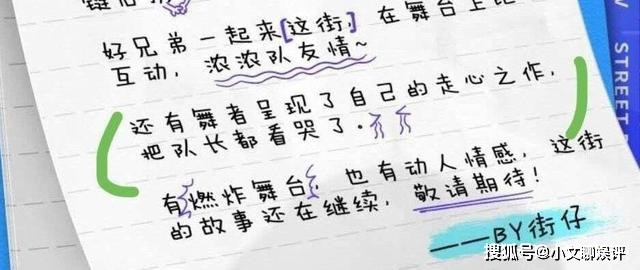 好兄弟一起来[这街], 在舞台上
互动, 浓浓队友情~
还有舞者呈现了自己的走心之作,
把队长都看哭了.
有燃炸舞台, 也有动人情感, 这街
的故事还在继续, 敬请期待!
——BY街仔
STREET
搜狐号@小文聊娱评